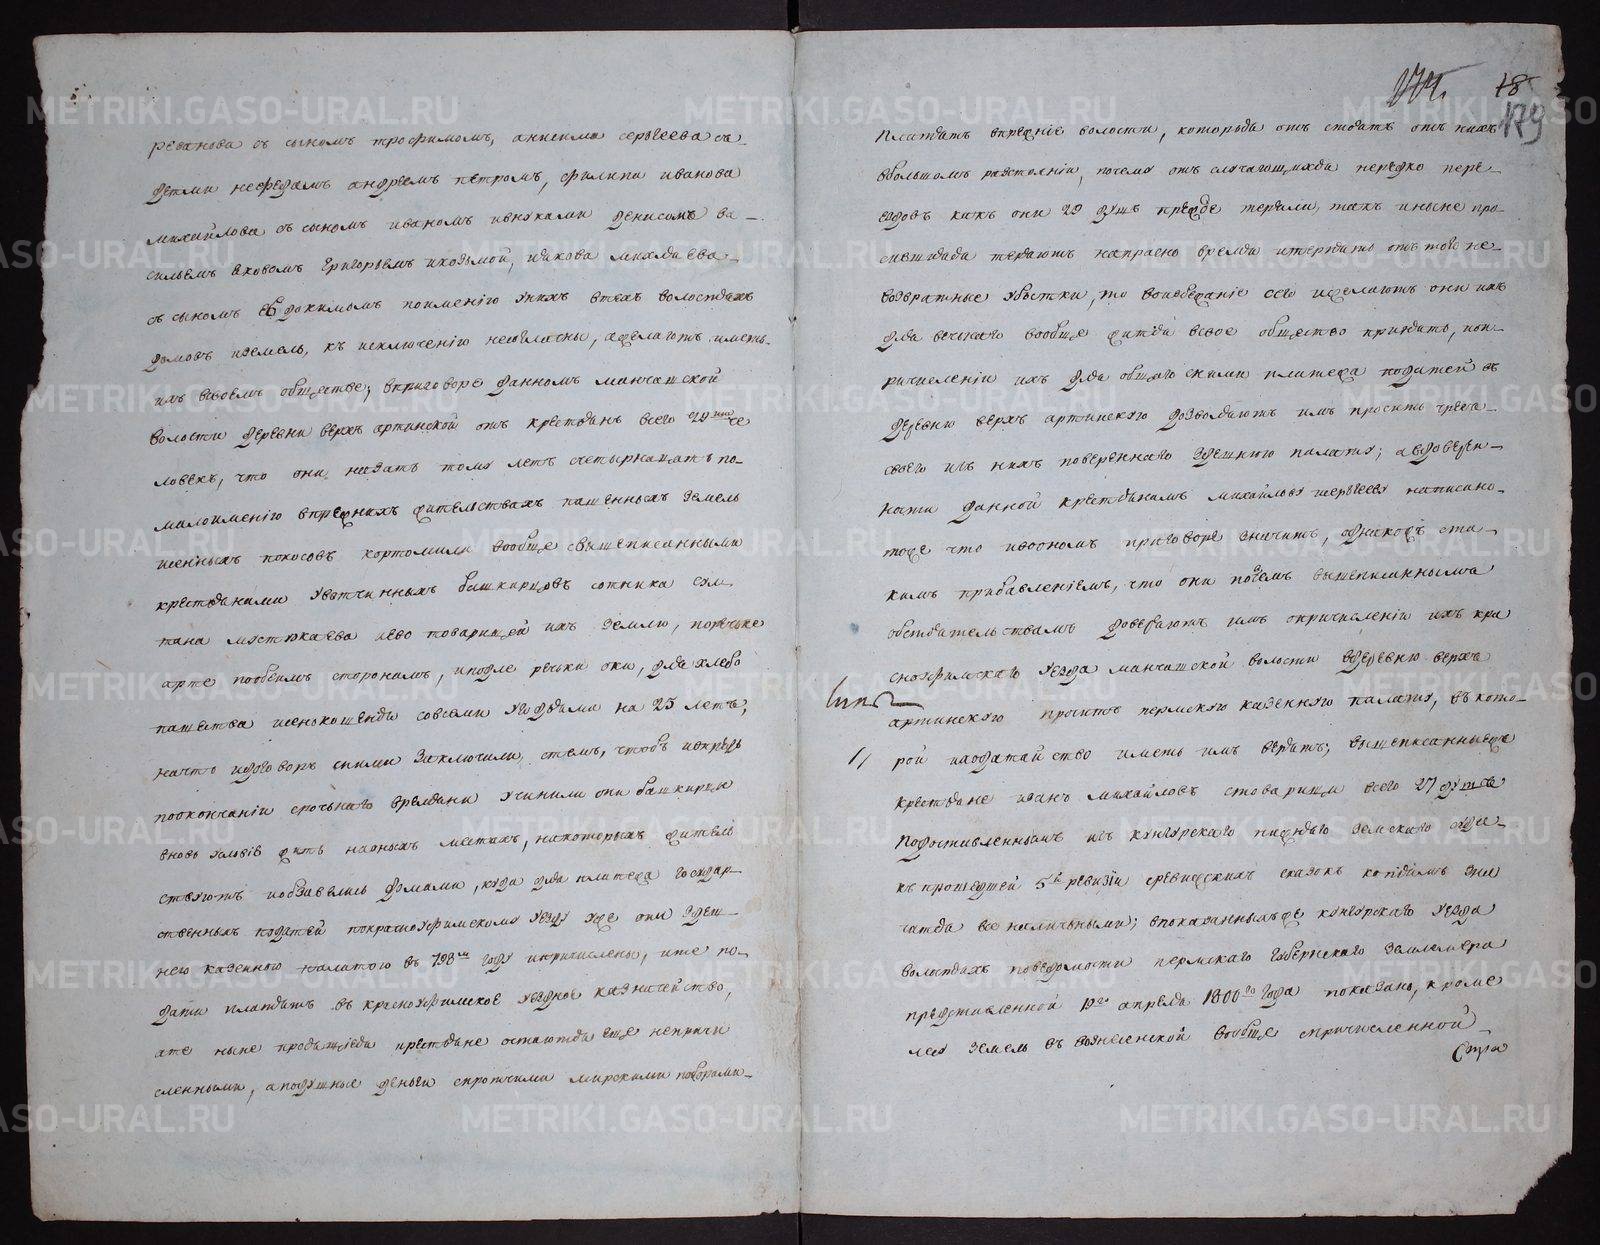 резанова съ сыномъ трофимомъ, анисима сергеева съ
детми нефедомъ андреемъ петромъ, филипа иванова
михайлова съ сыномъ иваномъ ивнуками денисомъ ва-
сильемъ яковомъ григорьемъ икозьмой, иякова
съ сыномъ Евдокимомъ поимению уних втехъ волостяхъ
домовъ иземель, къ исключению несогласны, ажелаютъ иметь
ихъ всвоемъ обществе; вприговоре данномъ манчажской
волости деревни верхъ артинской отъ крестьянъ всего 29 че
ловекъ, что они назатъ тому летъ счетырнацать по
малоимению впрежнихъ жительствахъ пашенныхъ земель
исенныхъ покосовъ кортомили вообще свышеписанными
крестьянами увотчинныхъ башкирцовъ сотника
иево товарищей ихъ землю, поречьке
арте пообеимъ сторонамъ, иподле речьки оки, для хлебо
пашества исенокошения совсеми угодьями на 25 летъ,
начто идоговоръ сними заключили стемъ, чтобъ
поокончании срочьнаго времяни учинили они башкирцы
вновь условие жить наоныхъ местахъ, накоторыхъ житель
ствуютъ иобзавелись домами, куда для платежа государ-
ственныхъ податей покрасноуфимскому уезду уже они здеш
нею казенною палатою въ 798м году ипричислены, ите по-
дати платятъ въ красноуфимское уездное казначейство,
ате ныне просящие крестьяне остаются еще непричи
сленными, аподушные деньги спротчими мирскими поборами
174.
178
179
платятъ впрежние волости, которыя отъ стоятъ отъ нихъ
вбольшомъ разстоянии, почему отъ случающихся нередко пере-
ездовъ какъ они 29 душъ прежде теряли, такъ иныне про-
сящия теряютъ напрасно время итерпятъ оттого не-
возвратные убытки, то воизбежание сего ижелаютъ они ихъ
для вечьнаго вообще житья всвое общество принять, ипри
ричислении ихъ для общаго сними платежа податей въ
деревню верхъ артинскую дозволяютъ имъ просить чреза
своего изъ нихъ повереннаго здешнюю палату; авдовери-
данной крестьянамъ михайлову исергееву написано
тоже что ивономъ приговоре значитъ, однакожъ ста-
кимъ прибавлениемъ, что они повсемъ вышеписаннымъ
обстоятельствамъ доверяютъ имъ опричислении ихъ кра
сноуфимскаго уезда манчажской волости вдеревню верхъ
артинскую просить пермскую казенную палату, въ кото-
рой иходатайство иметь имъ верятъ; вышеписанныежъ
крестьяне иванъ михайловъ стоварищи всего 27 душъ
подоставленнымъ изъ кунгурскаго нижняго земскаго суда
къ прошедшей 5й ревизии сревижскихъ сказокъ копиямъ зна
чатся все наличными; впоказанныхъже кунгурскаго уезда
волостяхъ поведомости пермскаго губернскаго землемера
представленной 19го апреля 1800го года показано, кроме
лесу земель въ вознесенской вообще спричисленной
Стра